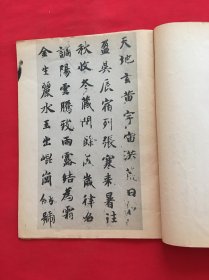 天地玄黄宇宙洪荒日月
盈昃辰宿列張寒来暑往
秋收冬藏閏餘成歲律吕
調陽雲騰致雨露結為霜
金生麗水玉出崐崗劍號